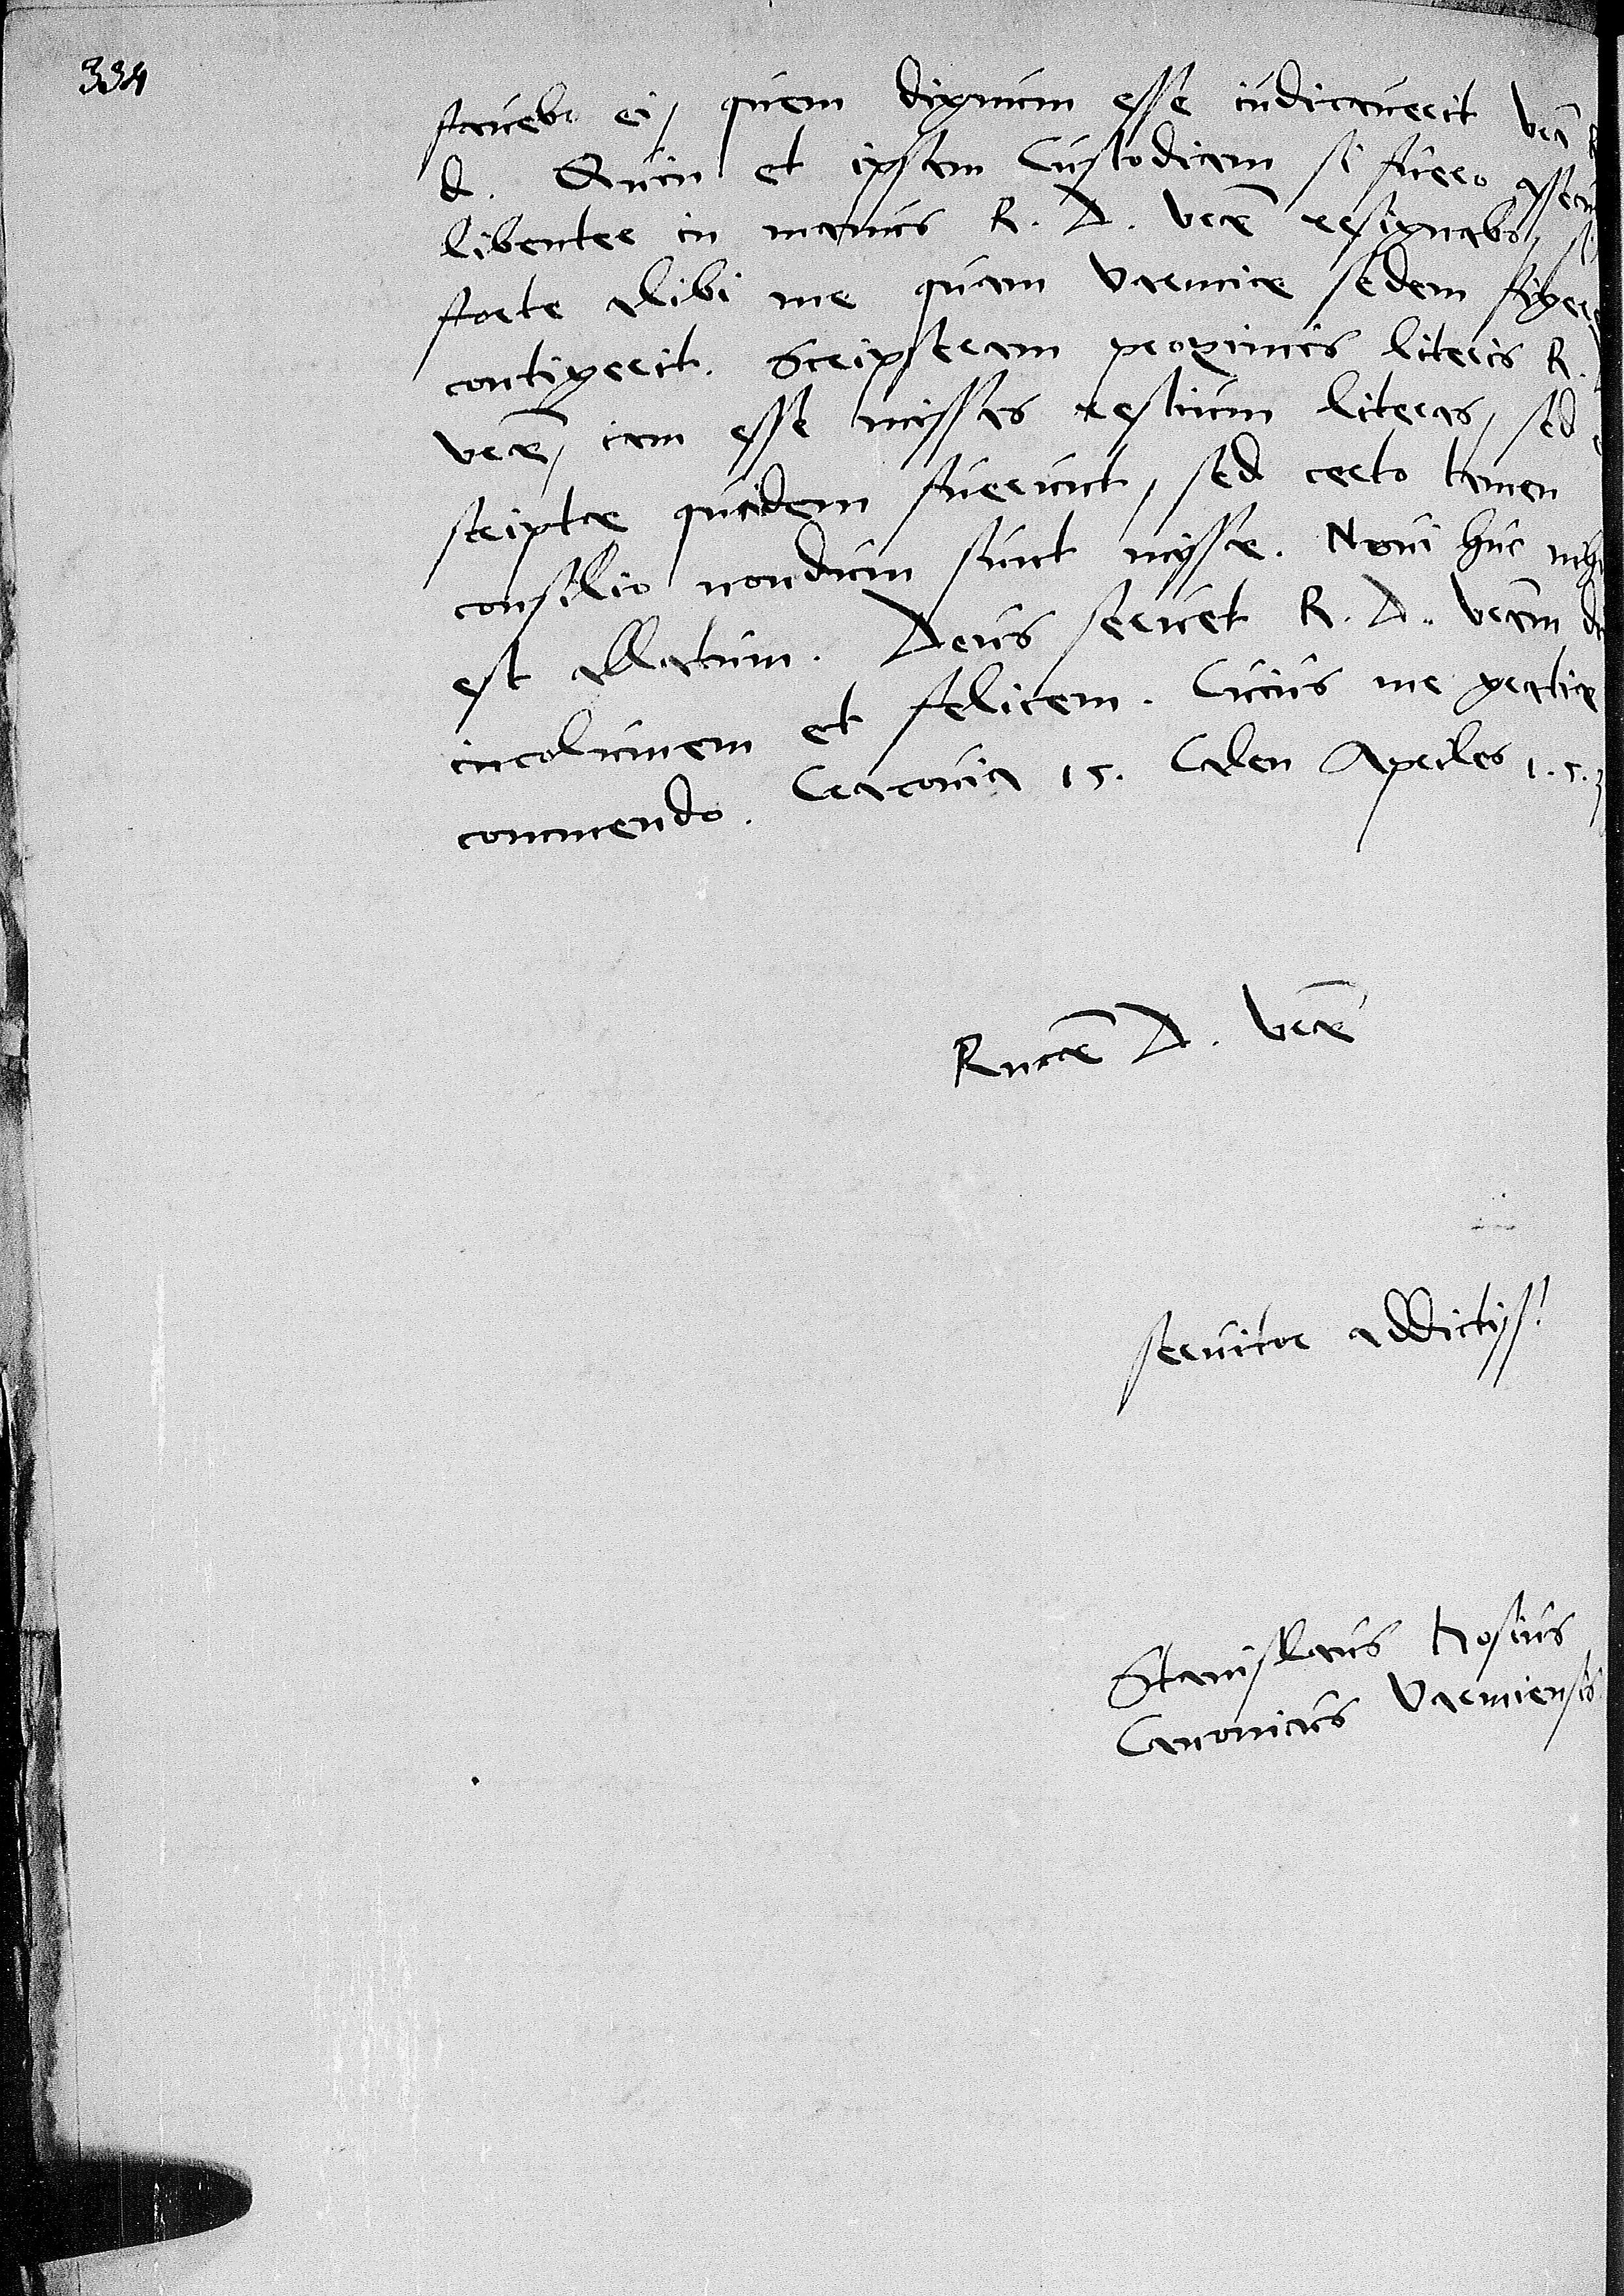 334
favebo ei, quem dignum esse iudicaverit Vra͞ R
d. Quin et ipsam Custodiam si fuero assecu
libenter in manus R. D. Vrae͞ resignabo, si
forte alibi me quam Varmiae sedem figere
contigerit. Scripseram proximis literis R.
Vrae͞, iam esse missas testium literas, sed
scriptae quidem fuerunt, sed certo tamen
consilio nondum sunt missae. Novi huc nihi
est allatum. Deus servet R. D. Vram͞ di
incolumem et felicem. Cuius me gratiae
commendo. Cracovia 15. Calen Apriles 1.5.3
Rmae͞ D. Vrae͞
servitor addictiss!
Stanislaus Hosius
Canonicus Varmiensis